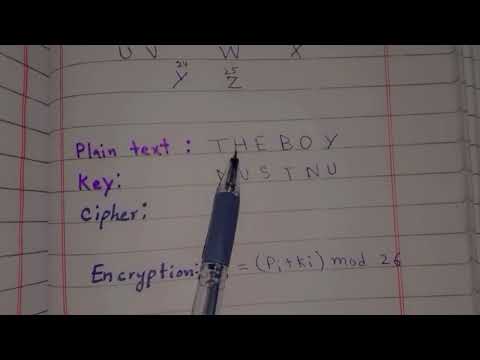 U V W X
24 25
Y Z
Plain text : THEBOY
Key: USTNU
Cipher:
Encryption: = (Pi+Ki) mod 26